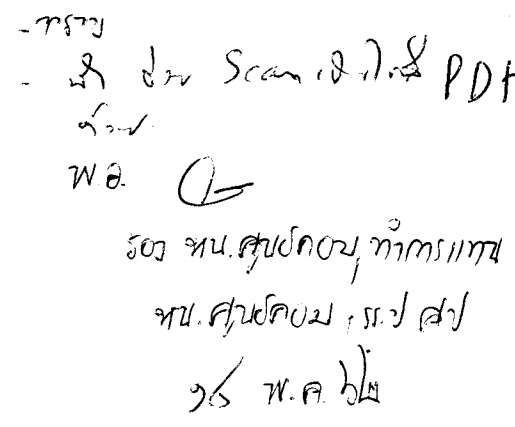 - ทราบ
- ช่วย Scan เป็นไฟล์ PDF
ด้วย
พ.อ.
รอง หน.ศูนย์คอมฯ ทำการแทน
หน.ศูนย์คอมฯ
พ.ค. ๖๒